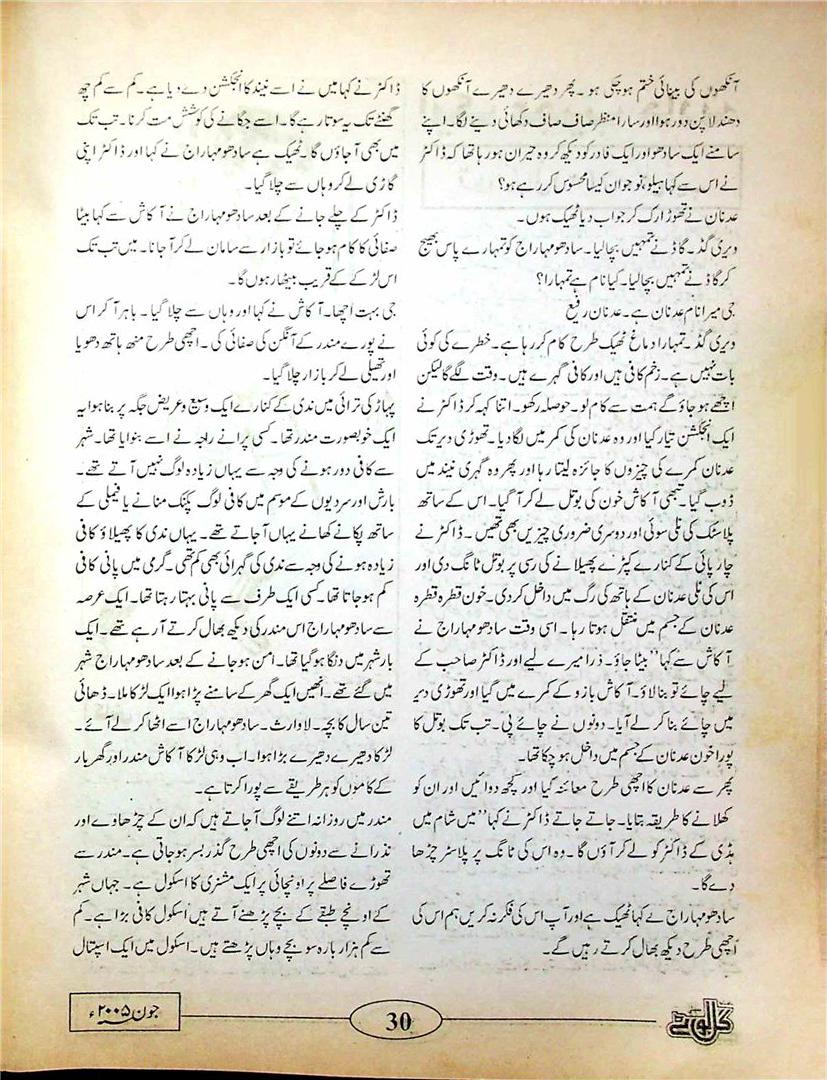 آنکھوں کی بینائی ختم ہوچکی ہو ۔ پھر دھیرے دھیرے آنکھوں کا
دھندلا پن دور ہوا اور سارا منظر صاف صاف دکھائی دینے لگا۔ اپنے
سامنے ایک سادھو اور ایک فادر کو دیکھ کر وہ حیران ہو رہا تھا کہ ڈاکٹر
نے اس سے کہا ہیلو، نوجوان کیسا محسوس کر رہے ہو؟
عدنان نے تھوڑا رک کر جواب دیا ٹھیک ہوں۔
ویری گڈ۔ گاڈ نے تمہیں بچالیا۔ سادھو مہاراج کو تمہارے پاس بھیج
کر گاڈ نے تمہیں بچالیا۔ کیا نام ہے تمہارا؟
جی میرا نام عدنان ہے۔ عدنان رفیع
ویری گڈ۔ تمہارا دماغ ٹھیک طرح کام کر رہا ہے۔ خطرے کی کوئی
بات نہیں ہے۔ زخم کافی ہیں اور کافی گہرے ہیں۔ وقت لگے گا لیکن
اچھے ہو جاؤ گے ہمت سے کام لو۔ حوصلہ رکھو۔ اتنا کہہ کر ڈاکٹر نے
ایک انجکشن تیار کیا اور وہ عدنان کی کمر میں لگا دیا۔ تھوڑی دیر تک
عدنان کمرے کی چیزوں کا جائزہ لیتا رہا اور پھر وہ گہری نیند میں
ڈوب گیا۔ تبھی آکاش خون کی بوتل لے کر آگیا۔ اس کے ساتھ
پلاسٹک کی نلی سوئی اور دوسری ضروری چیزیں بھی تھیں ۔ ڈاکٹر نے
چارپائی کے کنارے کپڑے پھیلانے کی رسی پر بوتل ٹانگ دی اور
اس کی نلی عدنان کے ہاتھ کی رگ میں داخل کردی۔ خون قطرہ قطرہ
عدنان کے جسم میں منتقل ہوتا رہا ۔ اسی وقت سادھو مہاراج نے
آکاش سے کہا ‘‘بیٹا جاؤ۔ ذرا میرے لیے اور ڈاکٹر صاحب کے
لیے چائے تو بنالاؤ۔ آکاش بازو کے کمرے میں گیا اور تھوڑی دیر
میں چائے بنا کر لے آیا۔ دونوں نے چائے پی۔ تب تک بوتل کا
پورا خون عدنان کے جسم میں داخل ہو چکا تھا۔
پھر سے عدنان کا اچھی طرح معائنہ کیا اور کچھ دوائیں اور ان کو
کھلانے کا طریقہ بتایا۔ جاتے جاتے ڈاکٹر نے کہا ‘‘میں شام میں
ہڈی کے ڈاکٹر کو لے کر آؤں گا۔ وہ اس کی ٹانگ پر پلاسٹر چڑھا
دے گا۔
سادھو مہاراج ے کہا ٹھیک ہے اور آپ اس کی فکر نہ کریں ہم اس کی
اچھی طرح دیکھ بھال کرتے رہیں گے۔
ڈاکٹر نے کہا میں نے اسے نیند کا انجکشن دے دیا ہے۔ کم سے کم چھ
گھنٹے تک یہ سوتا رہے گا۔ اسے جگانے کی کوشش مت کرنا۔ تب تک
میں بھی آجاؤں گا ۔ ٹھیک ہے سادھو مہاراج نے کہا اور ڈاکٹر اپنی
گاڑی لے کر وہاں سے چلا گیا۔
ڈاکٹر کے چلے جانے کے بعد سادھو مہاراج نے آکاش سے کہا بیٹا
صفائی کا کام ہوجائے تو بازار سے سامان لے کر آجانا۔ میں تب تک
اس لڑکے کے قریب بیٹھا رہوں گا ۔
جی بہت اچھا۔ آکاش نے کہا اور وہاں سے چلا گیا ۔ باہر آکر اس
نے پورے مندر کے آنگن کی صفائی کی ۔ اچھی طرح منھ ہاتھ دھویا
اور تھیلی لے کر بازار چلا گیا۔
پہاڑ کی ترائی میں ندی کے کنارے ایک وسیع و عریض جگہ پر بنا ہوا یہ
ایک خوبصورت مندر تھا۔ کسی پرانے راجہ نے اسے بنوایا تھا۔ شہر
سے کافی دور ہونے کی وجہ سے یہاں زیادہ لوگ نہیں آتے تھے۔
بارش اور سردیوں کے موسم میں کافی لوگ پکنک منانے یا فیملی کے
ساتھ پکانے کھانے یہاں آجاتے تھے۔ یہاں ندی کا پھیلاؤ کافی
زیادہ ہونے کی وجہ سے ندی کی گہرائی بھی کم تھی۔ گرمی میں پانی کافی
کم ہو جاتا تھا۔ کسی ایک طرف سے پانی بہتا رہتا تھا۔ ایک عرصہ
سے سادھو مہاراج اس مندر کی دیکھ بھال کرتے آرہے تھے۔ ایک
بار شہر میں دنگا ہو گیا تھا۔ امن ہو جانے کے بعد سادھو مہاراج شہر
میں گئے تھے۔ انھیں ایک گھر کے سامنے پڑا ہوا ایک لڑکا ملا۔ ڈھائی
تین سال کا بچہ۔ لاوارث۔ سادھو مہاراج اسے اٹھا کر لے آئے۔
لڑکا دھیرے دھیرے بڑا ہوا۔ اب وہی لڑکا آکاش مندر اور گھر بار
کے کاموں کو ہر طریقے سے پورا کرتا ہے۔
مندر میں روزانہ اتنے لوگ آجاتے ہیں کہ ان کے چڑھاوے اور
نذرانے سے دونوں کی اچھی طرح گذر بسر ہو جاتی ہے۔ مندر سے
تھوڑے فاصلے پر اونچائی پر ایک مشنری کا اسکول ہے۔ جہاں شہر
کے اونچے طبقے کے بچے پڑھنے آتے ہیں اسکول کافی بڑا ہے۔ کم
سے کم ہزار بارہ سو بچے وہاں پڑھتے ہیں۔ اسکول میں ایک اسپتال
گل بوٹے
30
جون ۲۰۰۵ء